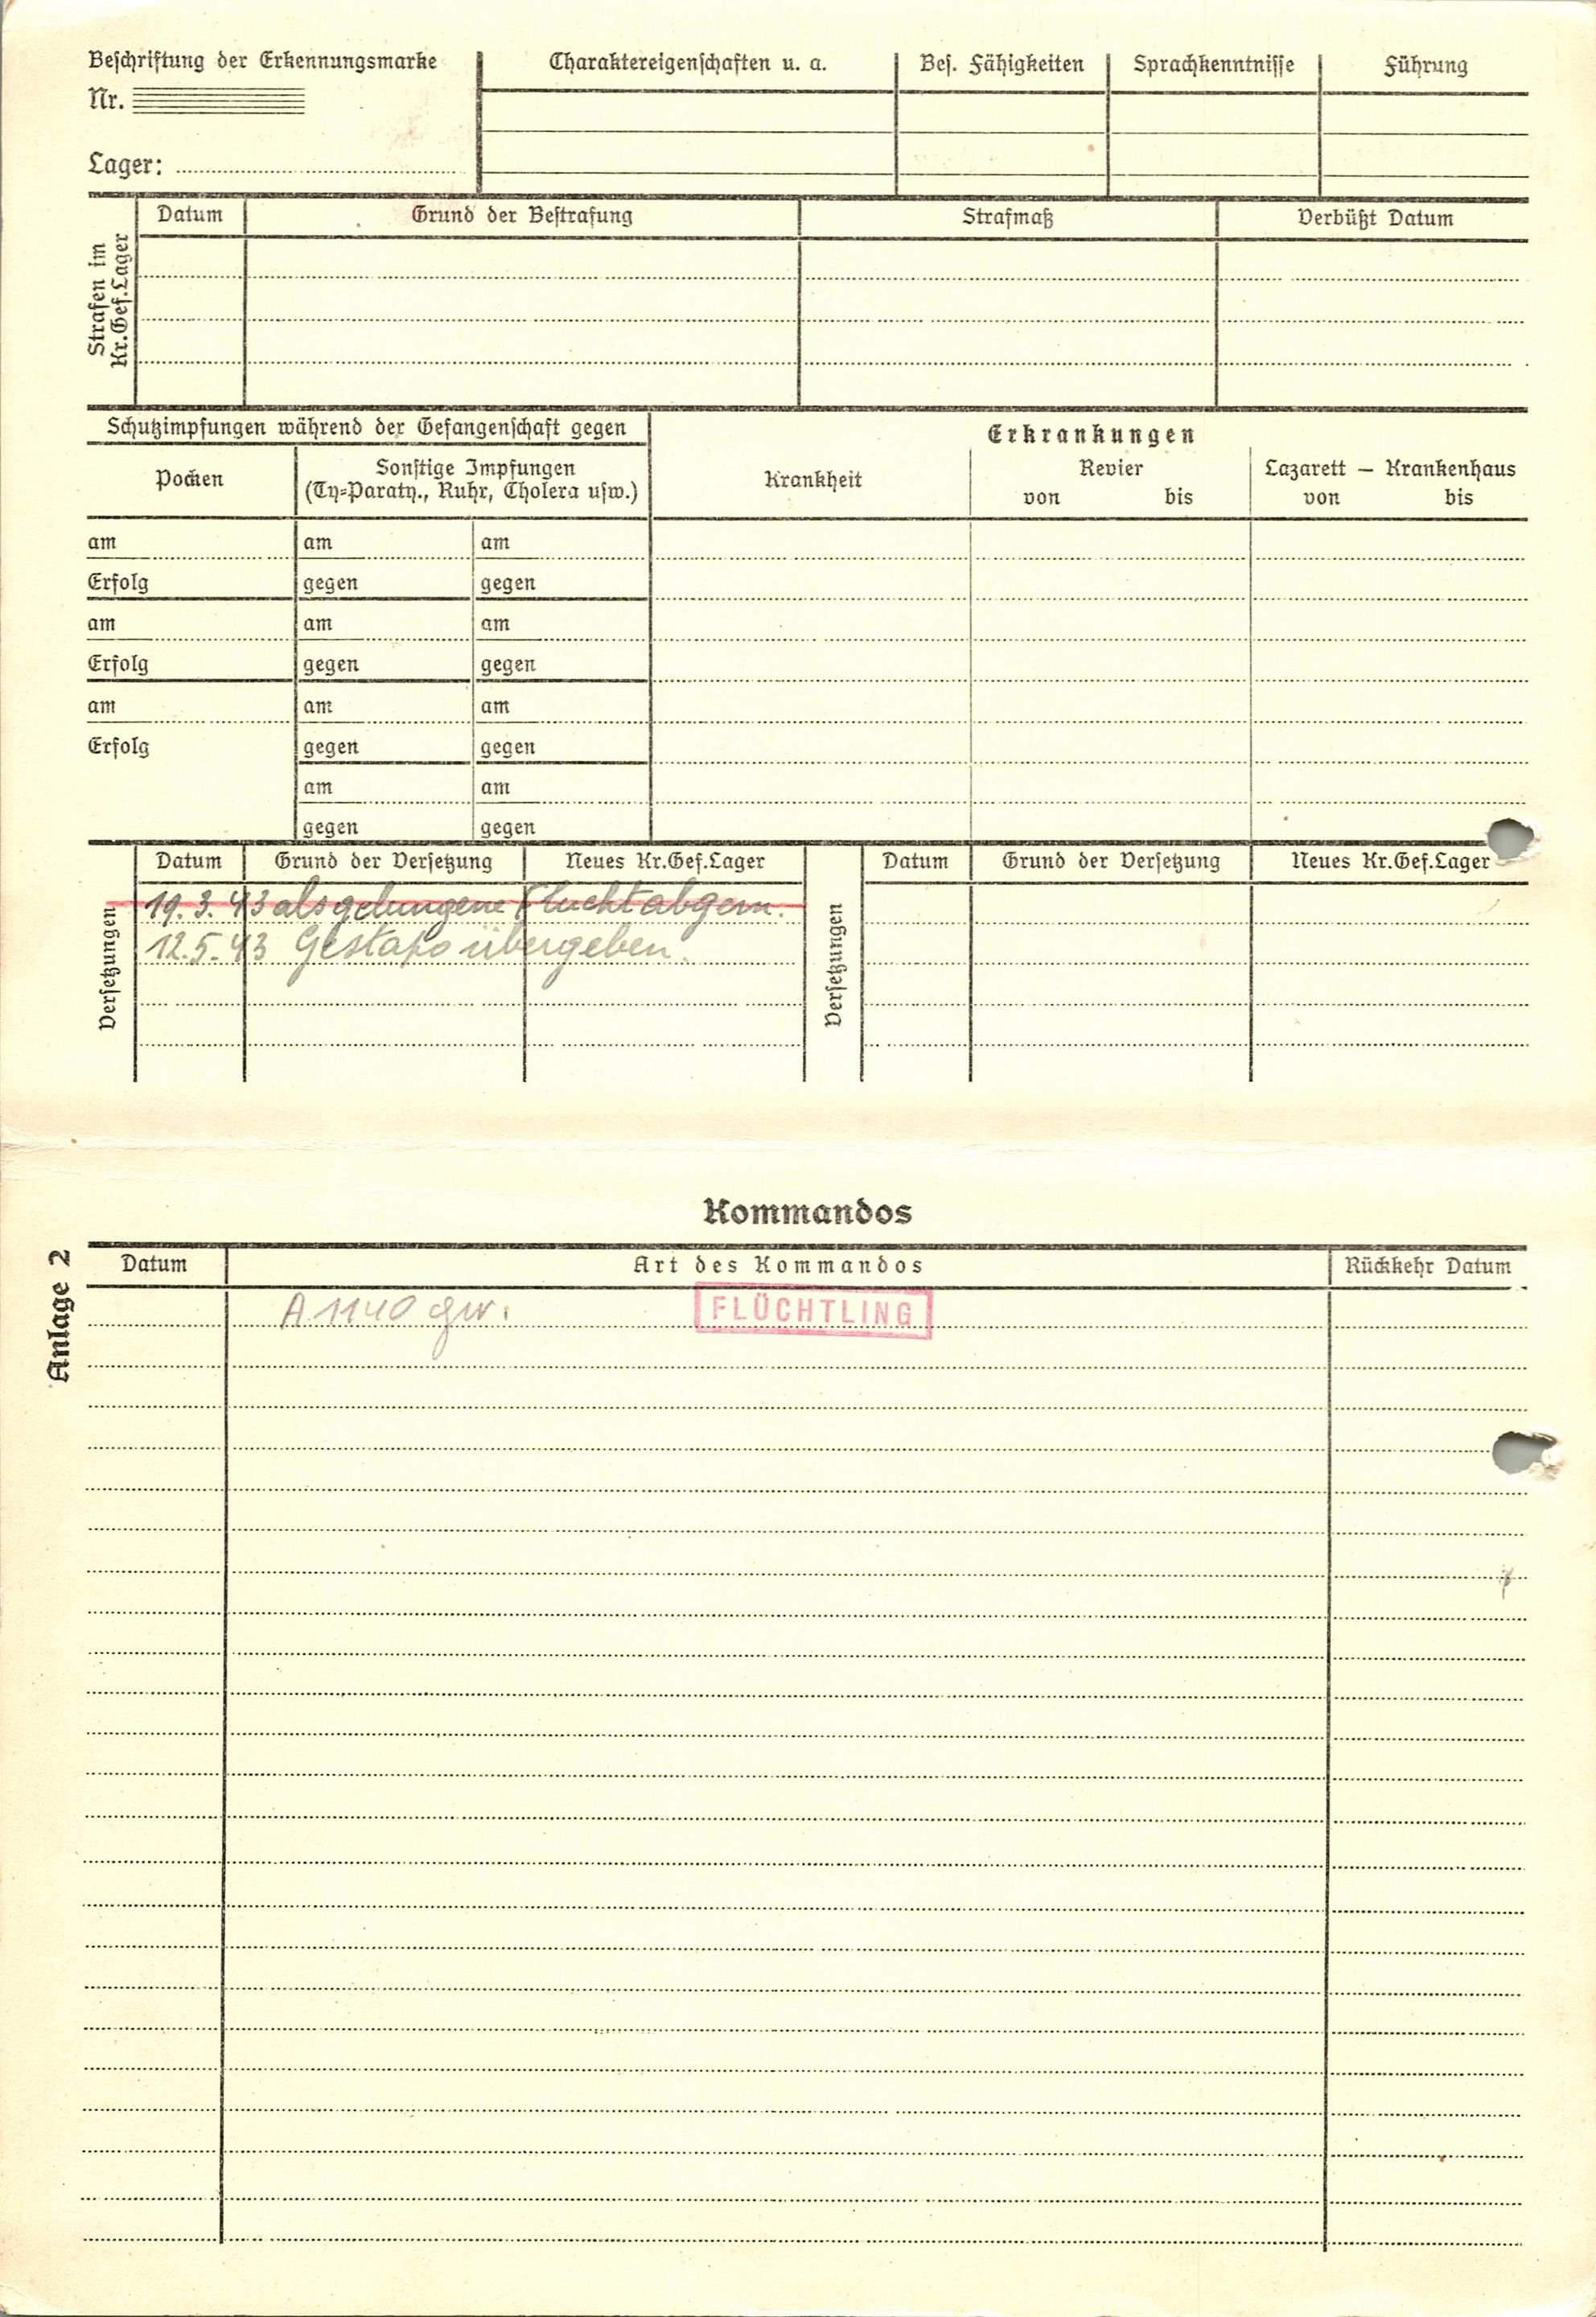 Beschriftung der Erkennungsmarke
Nr.
Lager:
Charaktereigenschaften u. a. Bes. Fähigkeiten Sprachkenntnisse Führung
Strafen im
Kr.Gef.Lager
Datum Grund der Bestrafung Strafmaß Verbüßt Datum
Schutzimpfungen während der Gefangenschaft gegen
Pocken
Sonstige Impfungen
(Ty=Paraty., Ruhr, Cholera usw.)
Erkrankungen
Krankheit
Revier
von bis
Lazarett — Krankenhaus
von bis
am am am
Erfolg gegen gegen
am am am
Erfolg gegen gegen
am am am
Erfolg gegen gegen
am am
gegen gegen
Versetzungen
Datum Grund der Versetzung Neues Kr.Gef.Lager
19.3.43 als gelungene Flucht abgem.
12.5.43 Gestapo übergeben.
Versetzungen
Datum Grund der Versetzung Neues Kr.Gef.Lager
Anlage 2
Kommandos
Datum Art des Kommandos Rückkehr Datum
A 1140 gw. FLÜCHTLING